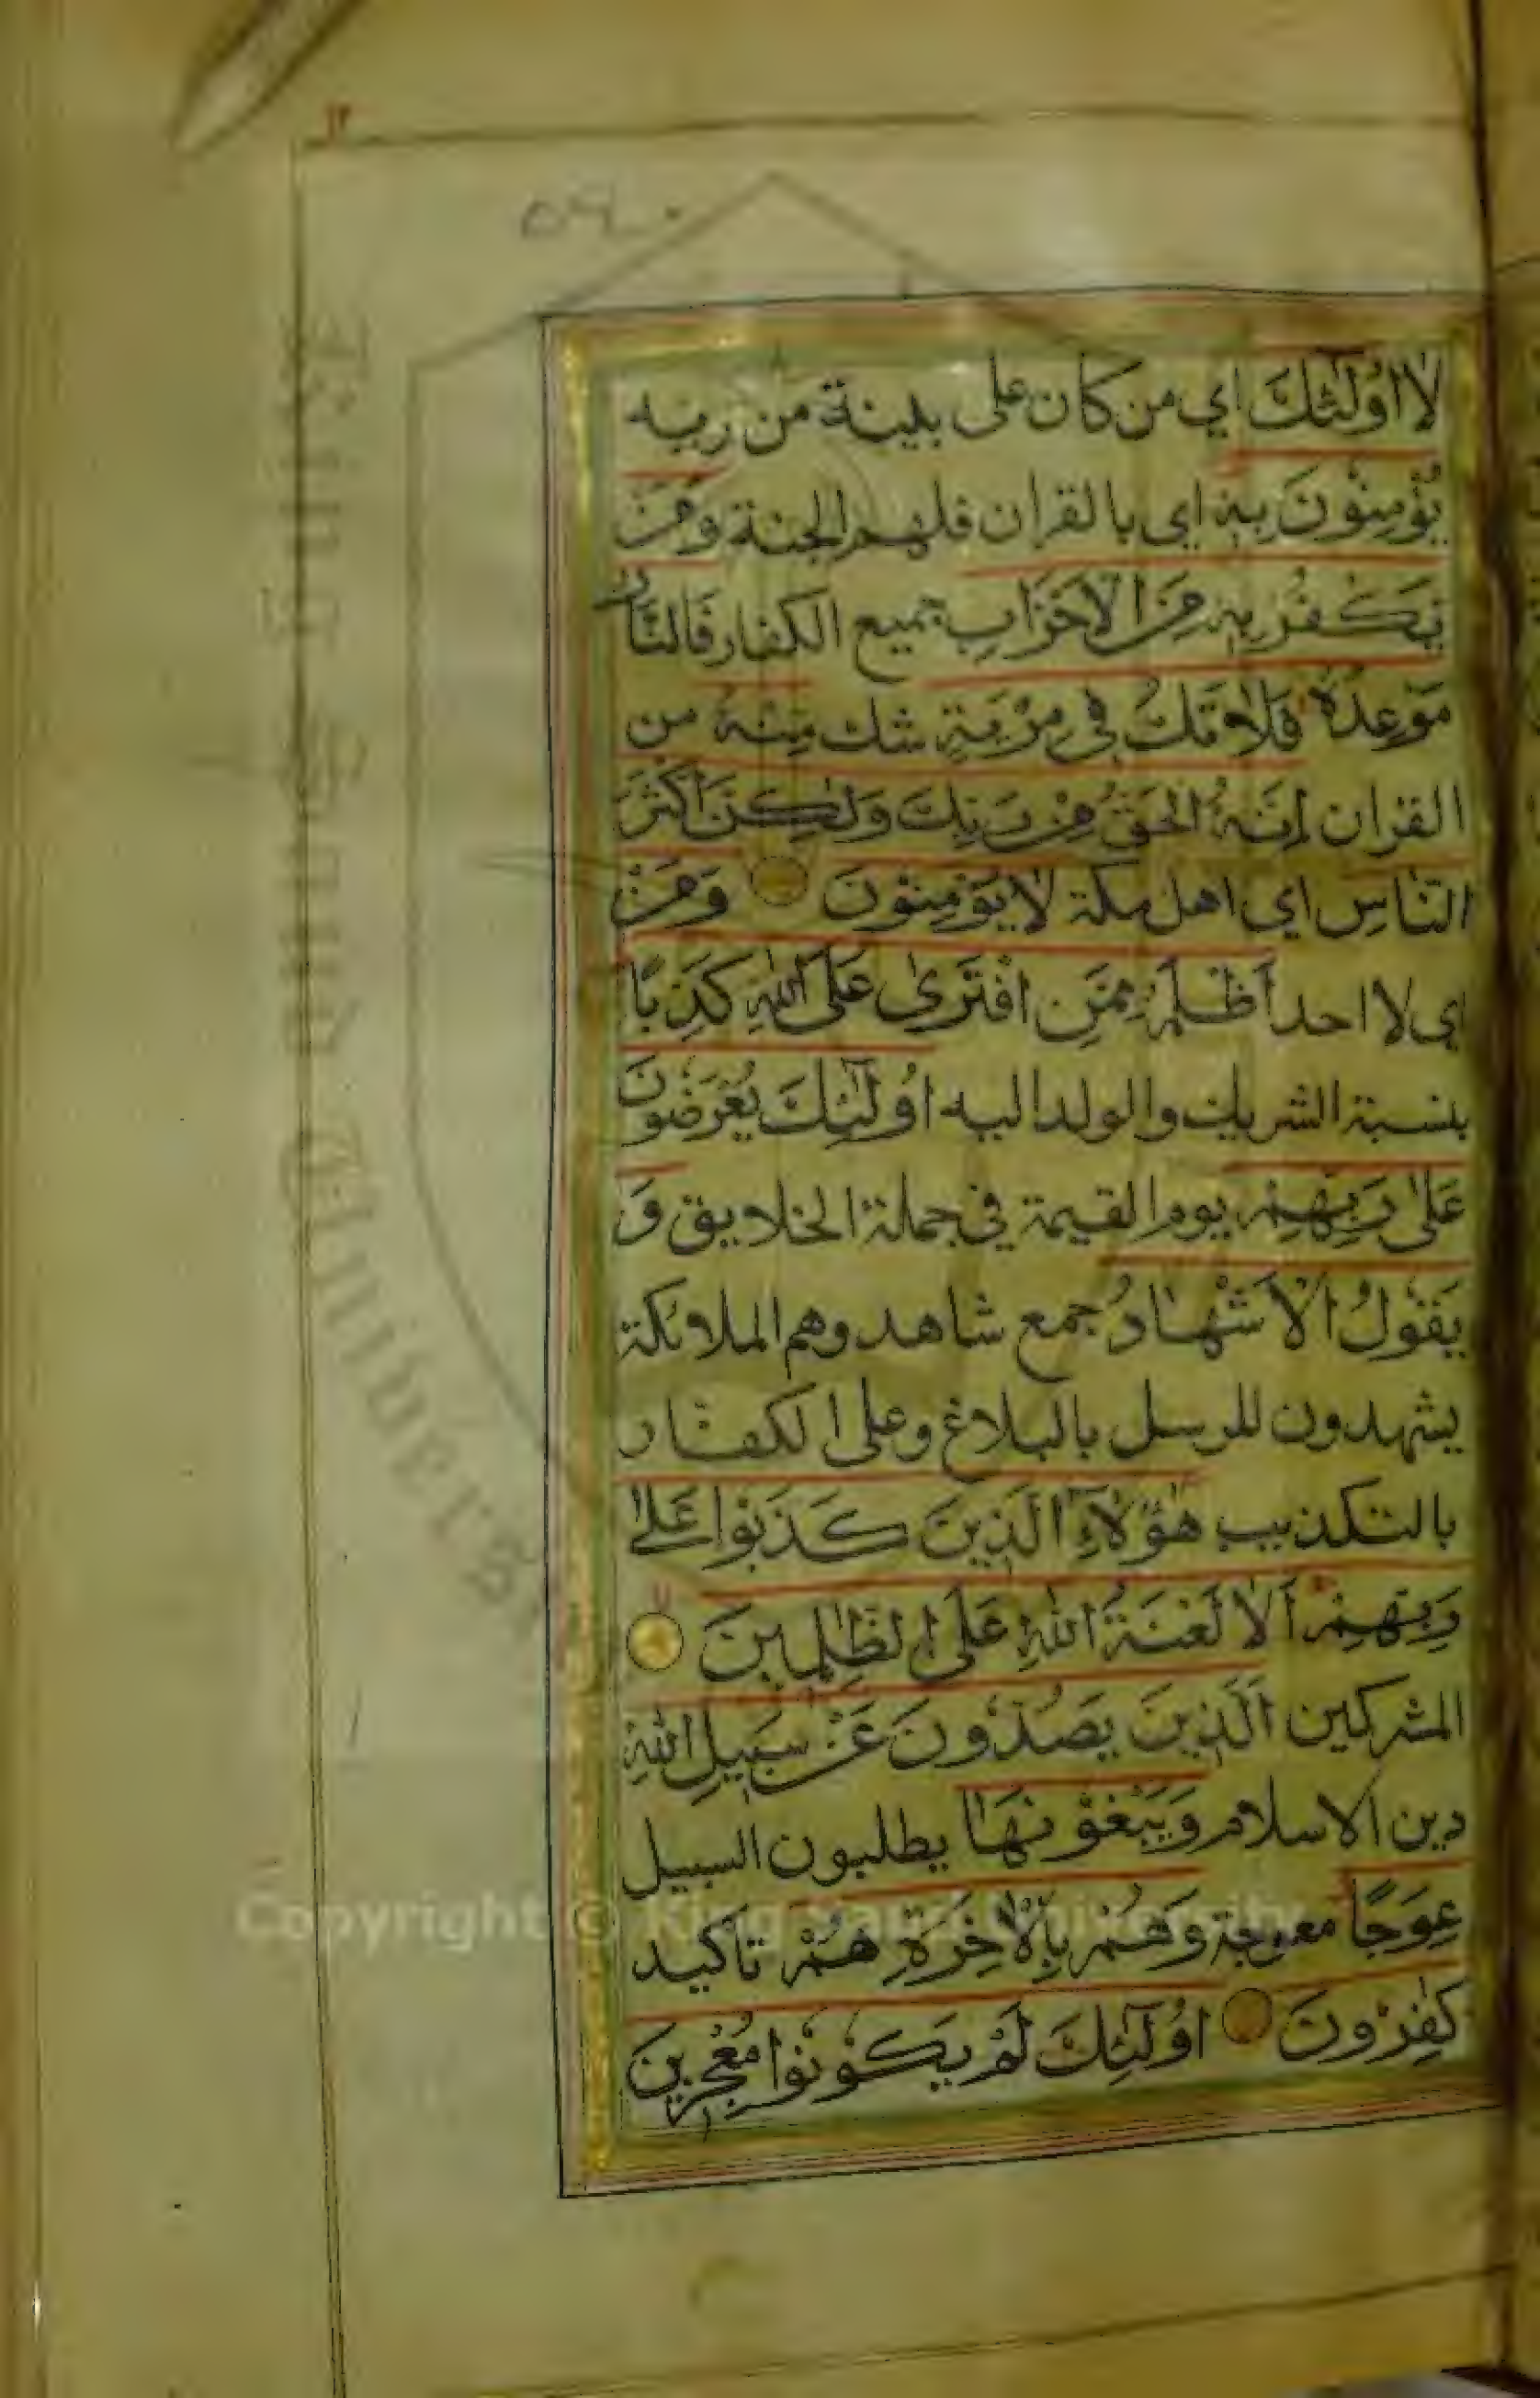 لا اُولٰئِكَ اي من كان على بلينة من ربه
يُؤْمِنُونَ بِهٖ اي بالقران فلهم الجنة وَمَنْ
يَكْفُرْ بِهٖ مِنَ الْاَحْزَابِ جميع الكفار فَالنَّارُ
مَوْعِدُهٗ فَلَا تَكُ فِي مِرْيَةٍ شك مِنْهُ من
القران اِنَّهُ الْحَقُّ مِنْ رَبِّكَ وَلٰكِنَّ اَكْثَرَ
النَّاسِ اي اهل مكة لَا يُؤْمِنُونَ وَمَنْ
اي لا احد اَظْلَمُ مِمَّنِ افْتَرٰى عَلَى اللّٰهِ كَذِبًا
بنسبة الشريك والولد اليه اُولٰئِكَ يُعْرَضُونَ
عَلٰى رَبِّهِمْ يوم القيمة في جملة الخلايق وَ
يَقُولُ الْاَشْهَادُ جمع شاهد وهم الملائكة
يشهدون للرسل بالبلاغ وعلى الكفار
بالتكذيب هٰؤُلَاءِ الَّذِينَ كَذَبُوا عَلٰى
رَبِّهِمْ اَلَا لَعْنَةُ اللّٰهِ عَلَى الظّٰلِمِينَ
المشركين اَلَّذِينَ يَصُدُّونَ عَنْ سَبِيلِ اللّٰهِ
دين الاسلام وَيَبْغُونَهَا يطلبون السبيل
عِوَجًا معوجة وَهُمْ بِالْاٰخِرَةِ هُمْ تأكيد
كٰفِرُونَ اُولٰئِكَ لَمْ يَكُونُوا مُعْجِزِينَ
Copyright © King Saud University
King Saud University